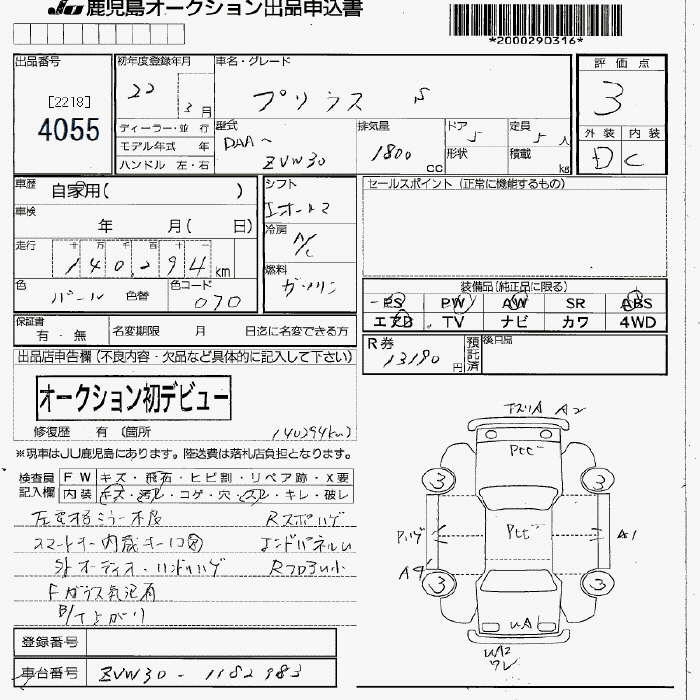 JU 鹿児島オークション出品申込書
*2000290316*
出品番号
[2218]
4055
初年度登録年月
22
3月
車名・グレード
プリウス S
評価点
3
外装 内装
D C
ディーラー・並 行
モデル年式 年
ハンドル 左・右
型式
DAA〜
ZVW30
排気量
1800
cc
ドア
5
形状
定員
5人
積載
kg
車歴
自家用( )
車検
年 月( 日)
走行
十 万 千 百 十 一
140,294 km
色
パール
色替
色コード
070
シフト
冷房
A/C
燃料
ガソリン
セールスポイント (正常に機能するもの)
装備品(純正品に限る)
PS PW AW SR ABS
エアB TV ナビ カワ 4WD
保証書
有・無
名変期限 月 日迄に名変できる方
R券
13190
円
預託済
後日品
出品店申告欄(不良内容・欠品など具体的に記入して下さい)
オークション初デビュー
修復歴 有 (箇所
140294km)
※現車はJU鹿児島にあります。陸送費は落札店負担となります。
検査員
記入欄
FW キズ・飛石・ヒビ割・リペア跡・X要
内装 キズ・汚レ・コゲ・穴・スレ・キレ・破レ
スマートキー内蔵キー1コ
Fガラス気泡有
エンドパネルU
A2
3
3
A1
A4
3
3
UA
登録番号
車台番号
ZVW30-1182983